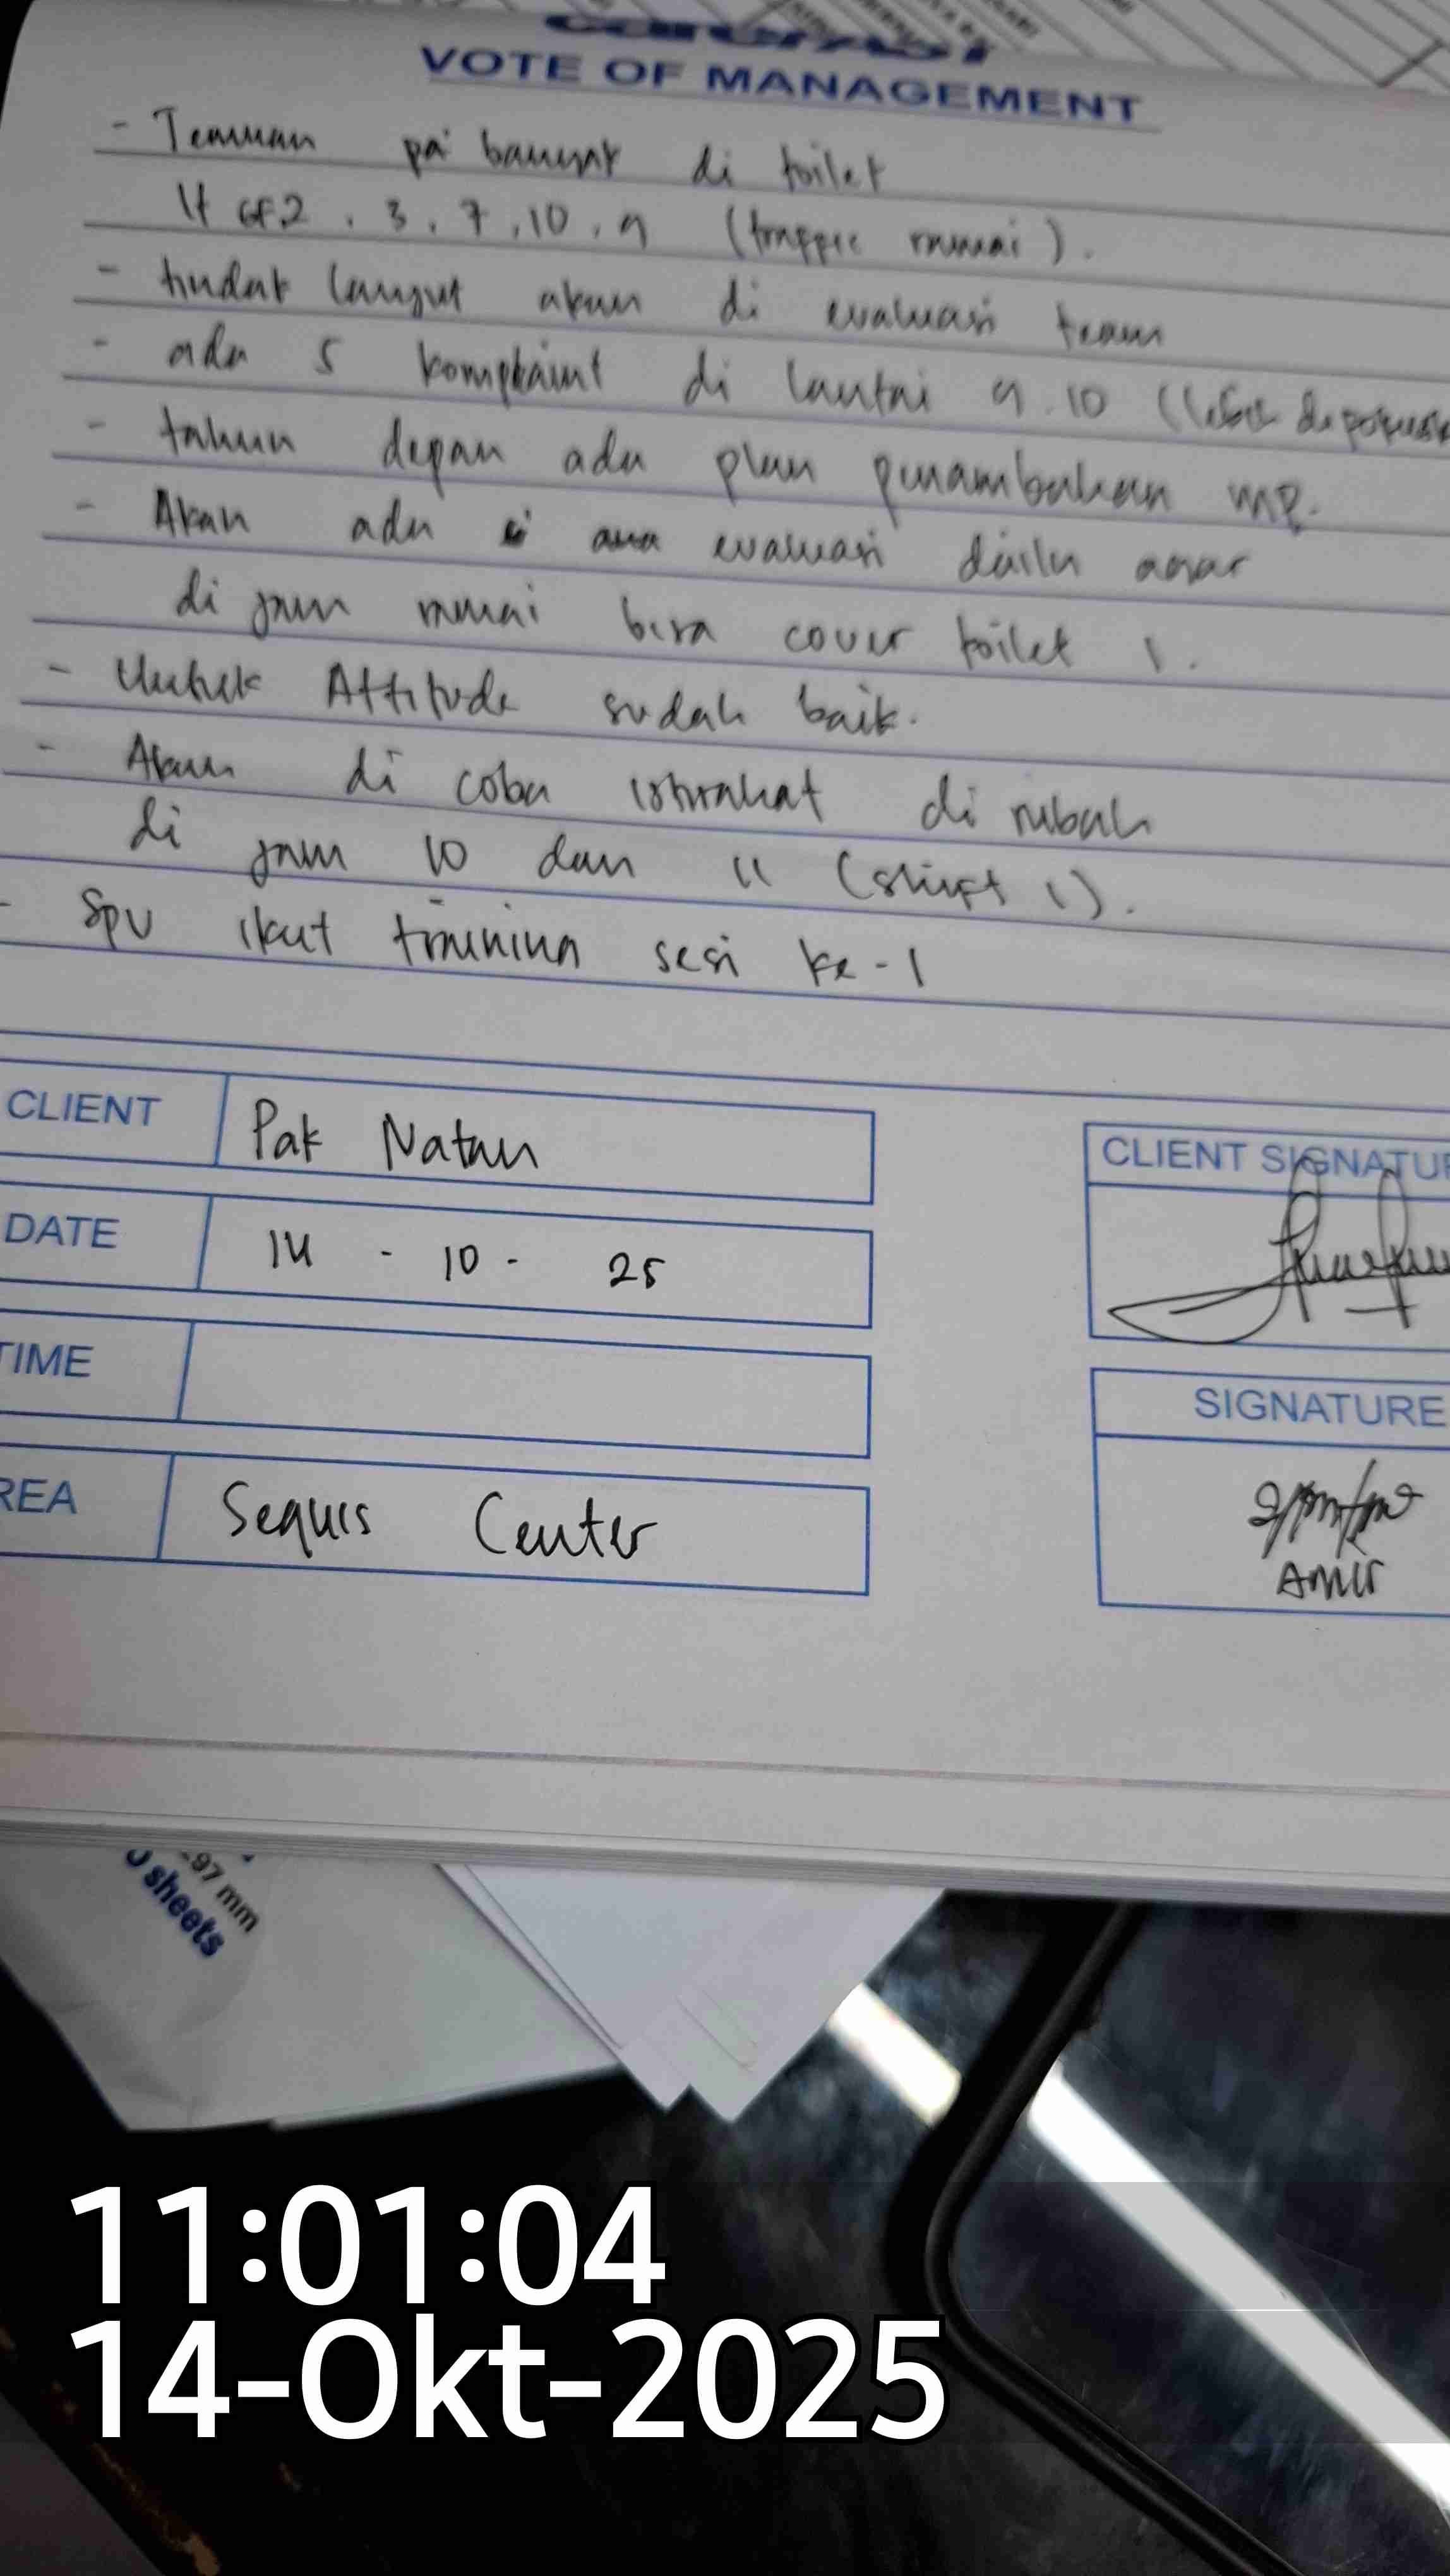 VOTE OF MANAGEMENT
- Temuan pa' banyak di toilet
lt GF2, 3, 7, 10, 9 (traffic ramai).
- tindak lanjut akan di evaluasi team
- ada 5 komplaint di lantai 9.10 (lebih
- tahun depan ada plan penambahan MP.
- Akan ada evaluasi daily agar
di jam ramai bisa cover toilet 1.
- Untuk Attitude sudah baik.
- Akan di coba istirahat di rubah
di jam 10 dan 11 (shift 1).
- Spv ikut training sesi ke-1
CLIENT
Pak Natan
CLIENT SIGNATU
DATE
14 - 10 - 25
TIME
SIGNATURE
REA
Sequis Center
Amir
97 mm
sheets
11:01:04
14-Okt-2025